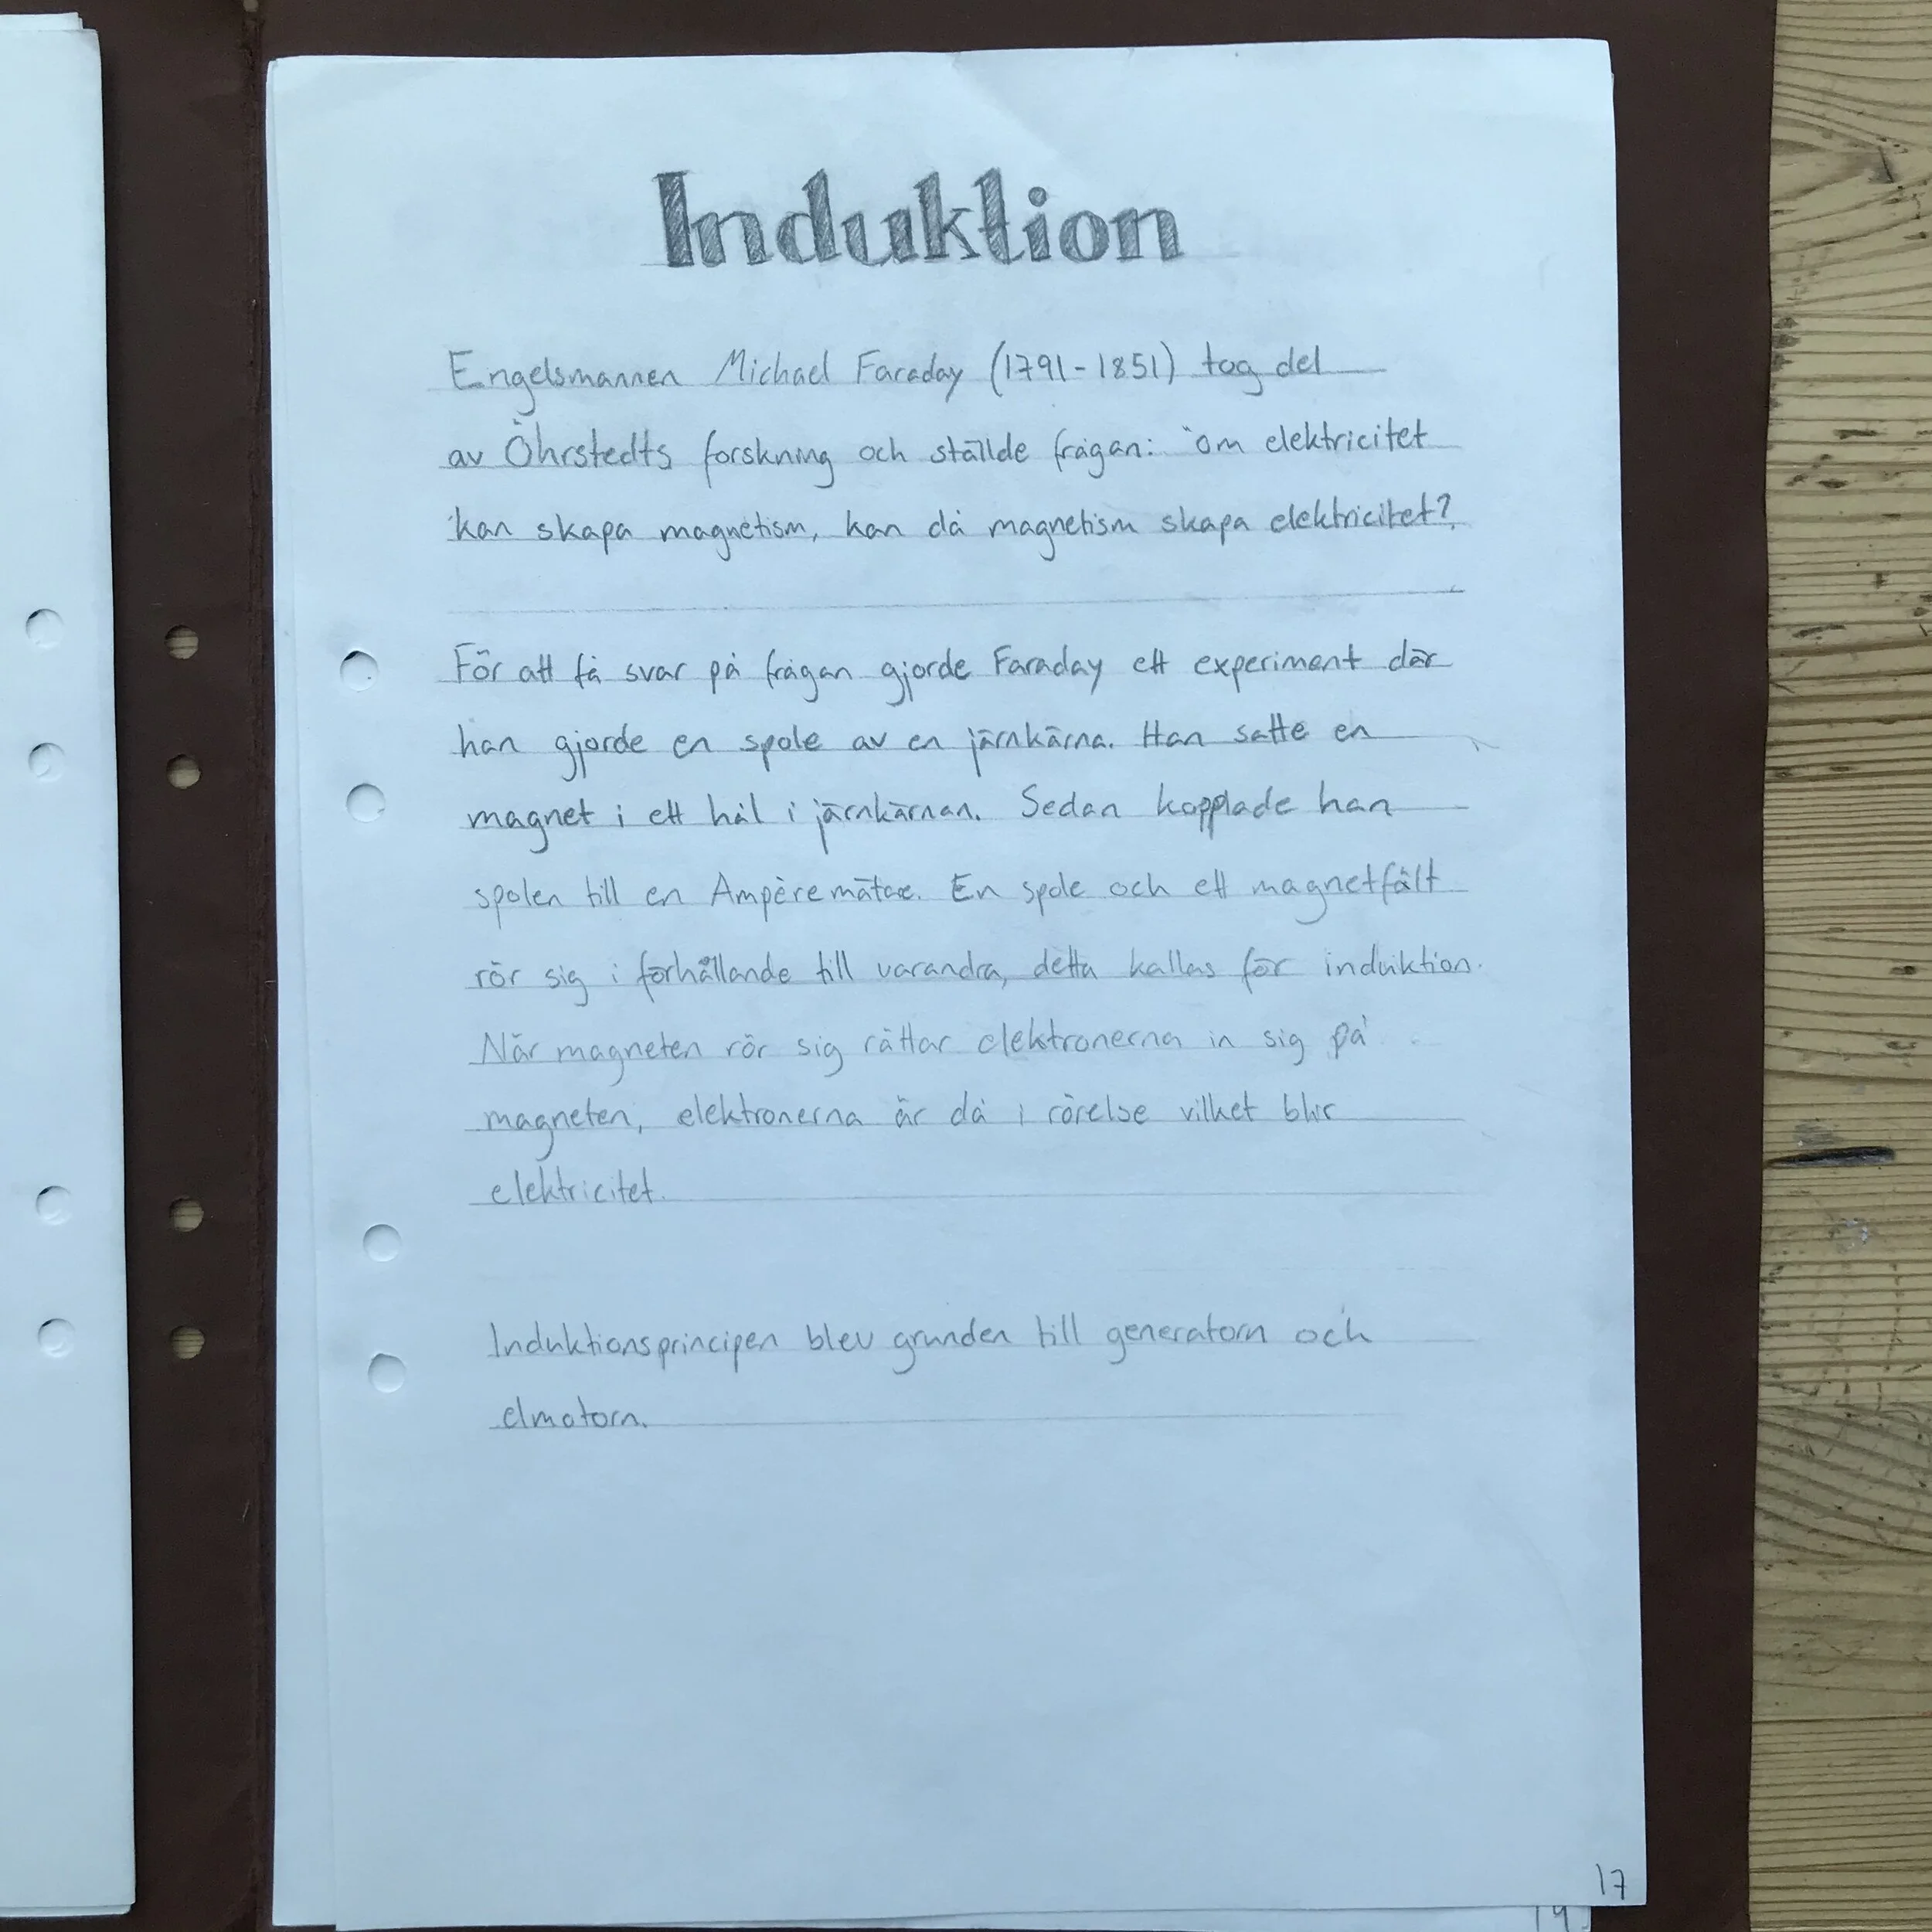 Induktion
Engelsmannen Michael Faraday (1791-1851) tog del
av Öhrstedts forskning och ställde frågan: "om elektricitet
kan skapa magnetism, kan då magnetism skapa elektricitet?
För att få svar på frågan gjorde Faraday ett experiment där
han gjorde en spole av en järnkärna. Han satte en
magnet i ett hål i järnkärnan. Sedan kopplade han
spolen till en Ampèremätare. En spole och ett magnetfält
rör sig i förhållande till varandra, detta kallas för induktion.
När magneten rör sig rättar elektronerna in sig på
magneten, elektronerna är då i rörelse vilket blir
elektricitet.
Induktionsprincipen blev grunden till generatorn och
elmotorn.
17